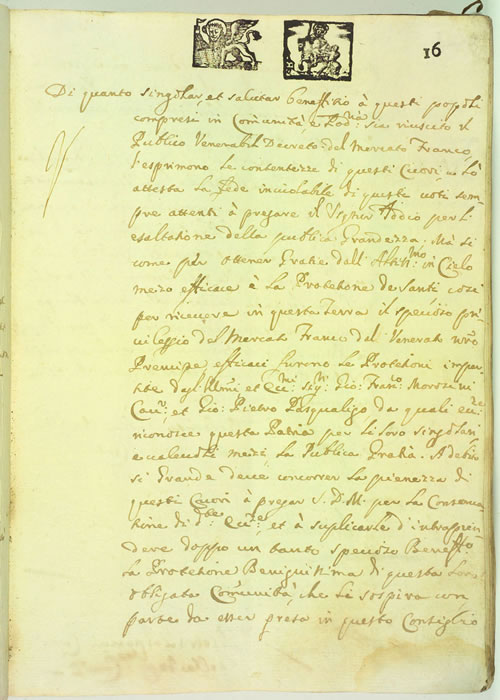 16
Di quanto singolar, et salutar benefitio à questi popoli
compresi in Com̃unità, e Pod.ria sia riuscito il
Publico Venerabil Decreto del Mercato Franco
l'esprimono le contentezze di questi Cuori, e lo
attesta la Fede inviolabile di questi voti sem
pre attenti à pregare il Signor Iddio per l'
esaltatione della publica Grandezza. Mà si
come per ottener Gratie dall' Altiss.mo in Cielo
mezo efficace è la Protetione de Santi così
per ricever in questa Terra il specioso pri
uileggio del Mercato Franco dal Venerato nr̃o
Prencipe, efficaci furono le Protetioni impar
tite dagl' Ill.mi et Ecc.mi Sig.ri Gio: Fran.co Morosini
Cau.r, et Gio: Pietro Pasqualigo, da quali
riconosce questa Patria per li loro singolari
e ualeuoli mezi, la Publica Gratia. A debito
si Grande deue concorrer la pienezza di
questi Cuori à pregar S. D. M. per la Conserua
tione di d.te Ecc.ze, et à suplicarle d'intrappren
dere doppo un tanto specioso Beneffitio
la Protetione Benignissima di questa loro
obligata Com̃unità, che la sospira con
parte da esser presa in questo Consiglio